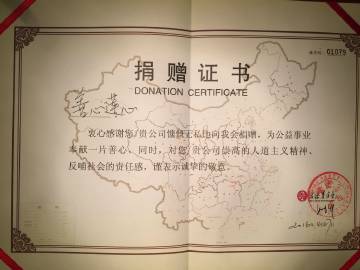 01079
捐赠证书
DONATION CERTIFICATE
善心莲心
衷心感谢您/贵公司慷慨无私地向我会捐赠，为公益事业
奉献一片善心。同时，对您/贵公司崇高的人道主义精神、
反哺社会的责任感，谨表示诚挚的敬意。